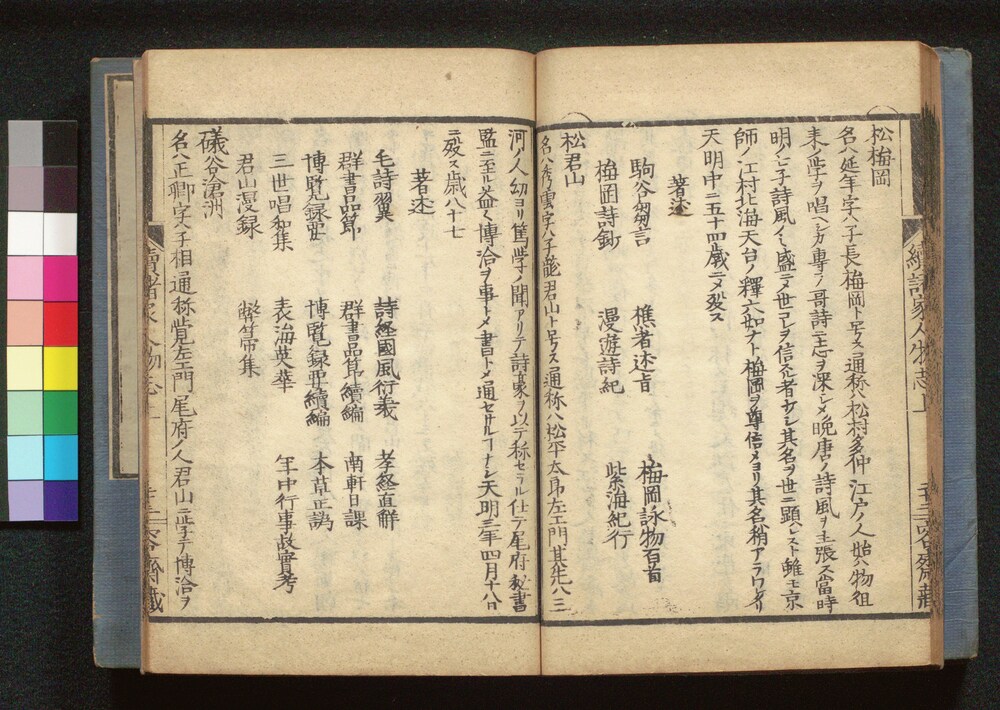 續諸家人物志上
松梅岡
名ハ延年字ハ子長梅岡ト号ス通称ハ松村多仲江戸ノ人始ハ物徂
徠ノ学ヲ唱ヘシカ専ラ哥詩ニ志ヲ深シメ晩唐ノ詩風ヲ主張ス當時
明七子詩風イミ盛ニメ世コレヲ信スル者ナシ其名ヲ世ニ顕ハレスト雖モ京
師ノ江村北海天台ノ釋六如ナト梅岡ヲ尊信メヨリ其名稍アラワタリ
天明中ニ五十四歳ニメ歿ス
著述
駒谷芻言 樵者述旨 梅岡詠物百首
梅岡詩鈔 漫遊詩紀 紫海紀行
松君山
名ハ秀雲字ハ子龍君山ト号ス通称ハ松平太郎左ヱ門其先ハ三
河ノ人幼ヨリ篤学ノ聞アリテ詩豪ヲ以テ称セラル仕テ尾府秘書
監ニ至ル益〱博洽ヲ事トメ書トメ通セサルヿナシ天明三年四月十八日
ニ歿ス歳八十七
著述
毛詩翼 詩経國風衍義 孝経直解
群書品節 群書品節續編 南軒日課
博覧録要 博覧録要續編 本草正譌
三世唱和集 表海英華 年中行事故實考
君山漫録 弊箒集
礒谷滄洲
名ハ正卿字ハ子相通称覚左ヱ門尾府ノ人君山ニ学テ博洽ヲ
續諸家人物志上